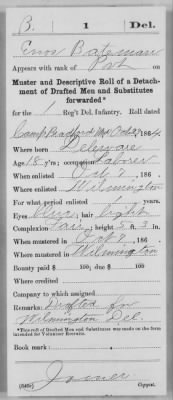 B. | 1 | Del.
Enos Bateman
Appears with rank of Pvt on
Muster and Descriptive Roll of a Detach-
ment of Drafted Men and Substitutes
forwarded*
for the 1 Reg't Del. Infantry. Roll dated
Camp Bradford Md Oct 22, 1864.
Where born Delaware
Age 18 y'rs; occupation Laborer
When enlisted Oct 7, 186 .
Where enlisted Wilmington
For what period enlisted 1 years.
Eyes blue; hair light
Complexion Fair; height 5 ft. 3 in.
When mustered in Oct 7, 186 .
Where mustered in Wilmington
Bounty paid $ 100; due $ 100
Where credited
Company to which assigned
Remarks: Drafted for
Wilmington Del.
*This roll of Drafted Men and Substitutes was made on the form
intended for Volunteer Recruits.
Book mark:
Joiner
(340c) Copyist.